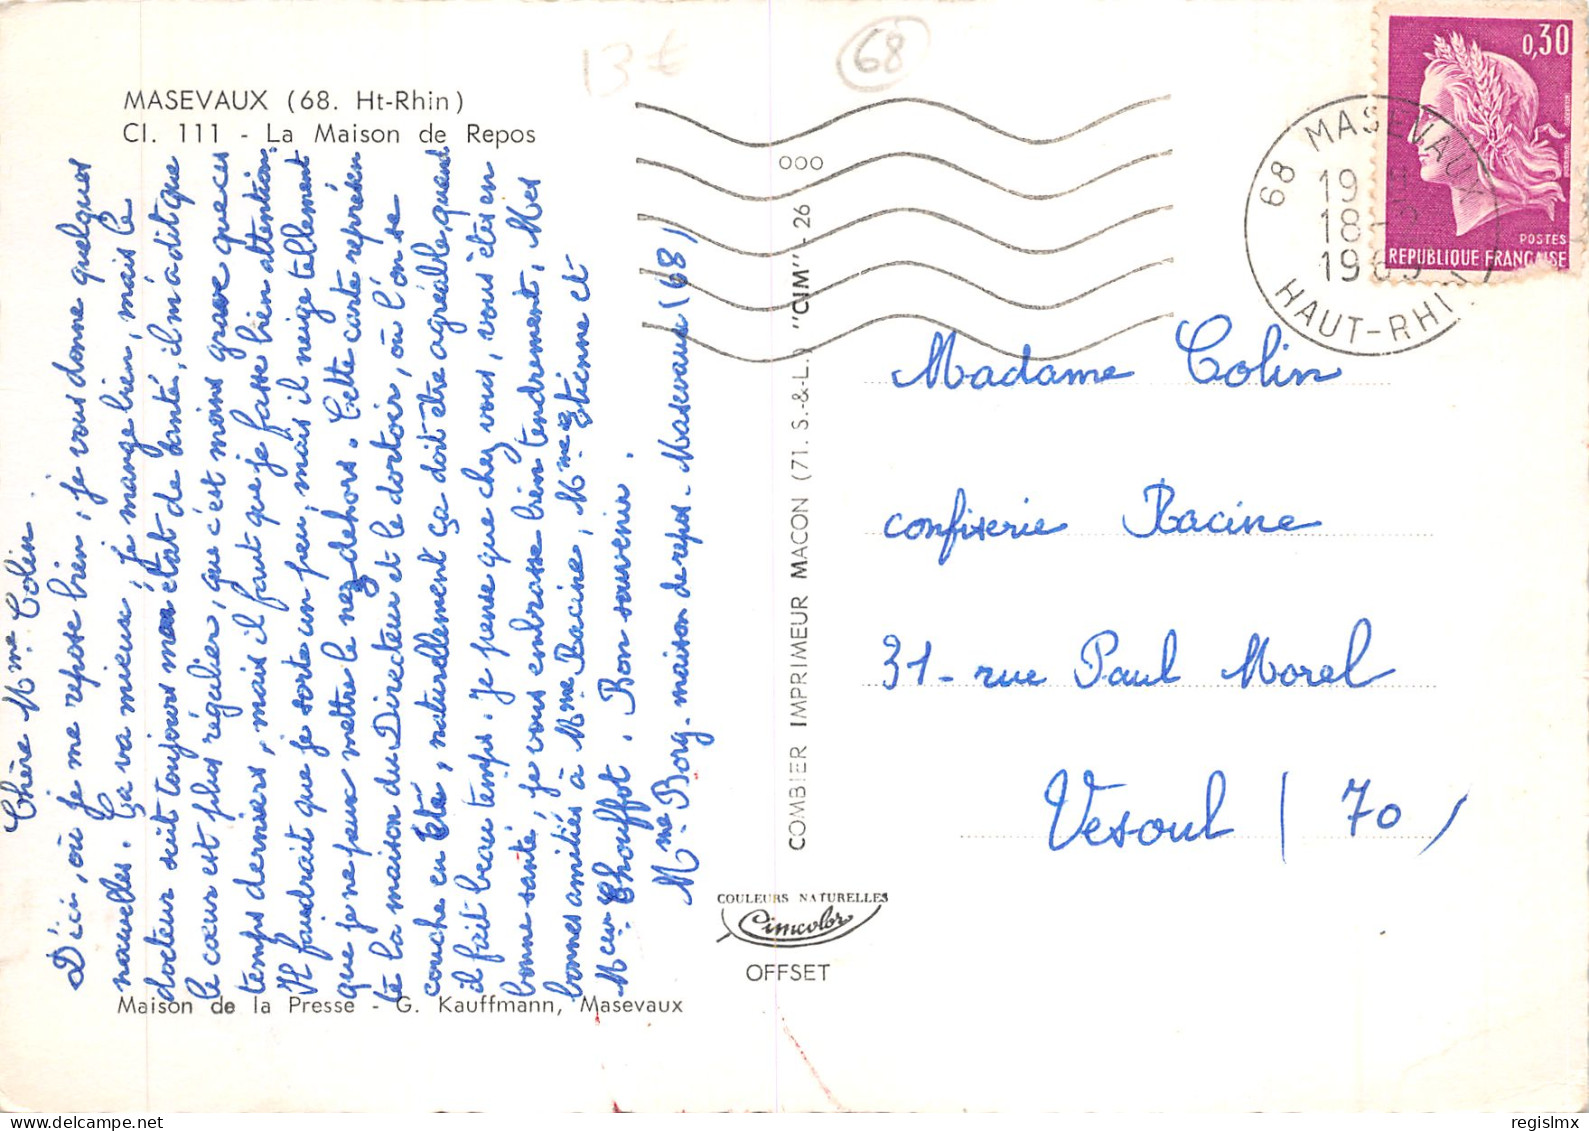 MASEVAUX (68. Ht-Rhin)
Cl. 111 - La Maison de Repos
13 €
68
Chère Mme Colin.
D'ici, où je me repose bien, je vous donne quelques
nouvelles. Ça va mieux, je mange bien, mais le
docteur suit toujours mon état de santé, il m'a dit que
le cœur est plus régulier, que c'est moins grave que ces
temps derniers, mais il faut que je fasse bien attention.
Il faudrait que je sorte un peu, mais il neige tellement
que je ne peux mettre le nez dehors. Cette carte représen
te la maison du Directeur et le dortoir, où l'on se
couche en Eté, naturellement ça doit être agréable, quand
il fait beau temps. Je pense que chez vous, vous êtes en
bonne santé, je vous embrasse bien tendrement, Mes
bonnes amitiés à Mme Racine, Mme Etienne et
Mceur Chouffot. Bon souvenir.
Mme Borg - maison de repos - Masevaux (68)
Maison de la Presse - G. Kauffmann, Masevaux
COMBIER IMPRIMEUR MACON (71. S.-&-L.) "CIM" - 26
000
COULEURS NATURELLES
Cimcolor
OFFSET
68 MASEVAUX
18
196
HAUT-RHIN
0,30
POSTES
REPUBLIQUE FRANÇAISE
Madame Colin
confiserie Racine
31 - rue Paul Morel
Vesoul (70)
regislmx